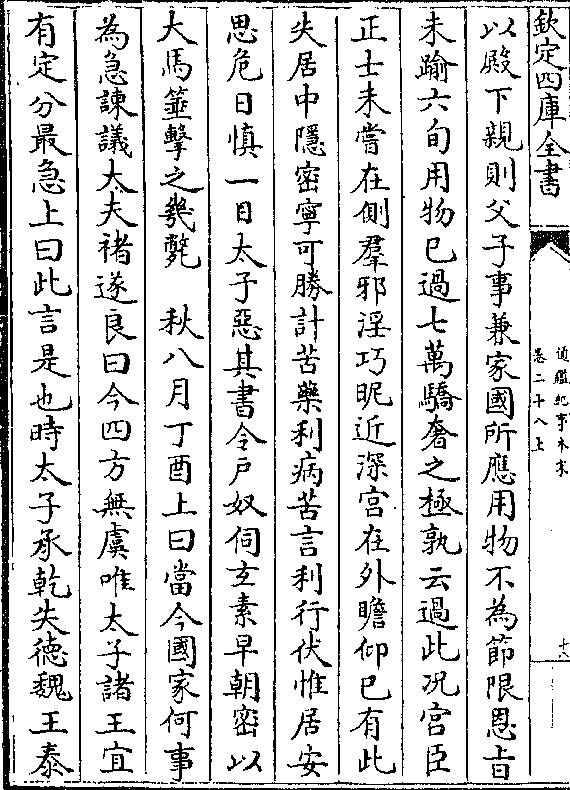 欽定四庫全書
通鑑紀事本末
卷二十八上
十八
以殿下親則父子事兼家國所應用物不為節限恩㫖
未踰六旬用物已過七萬驕奢之極孰云過此况宫臣
正士未嘗在側羣邪淫巧昵近深宫在外瞻仰已有此
失居中隱密寧可勝計苦藥利病苦言利行伏惟居安
思危日慎一日太子惡其書令户奴伺𤣥素早朝密以
大馬箠擊之幾斃　秋八月丁酉上曰當今國家何事
為急諫議大夫褚遂良曰今四方無虞唯太子諸王宜
有定分最急上曰此言是也時太子承乾失德魏王泰